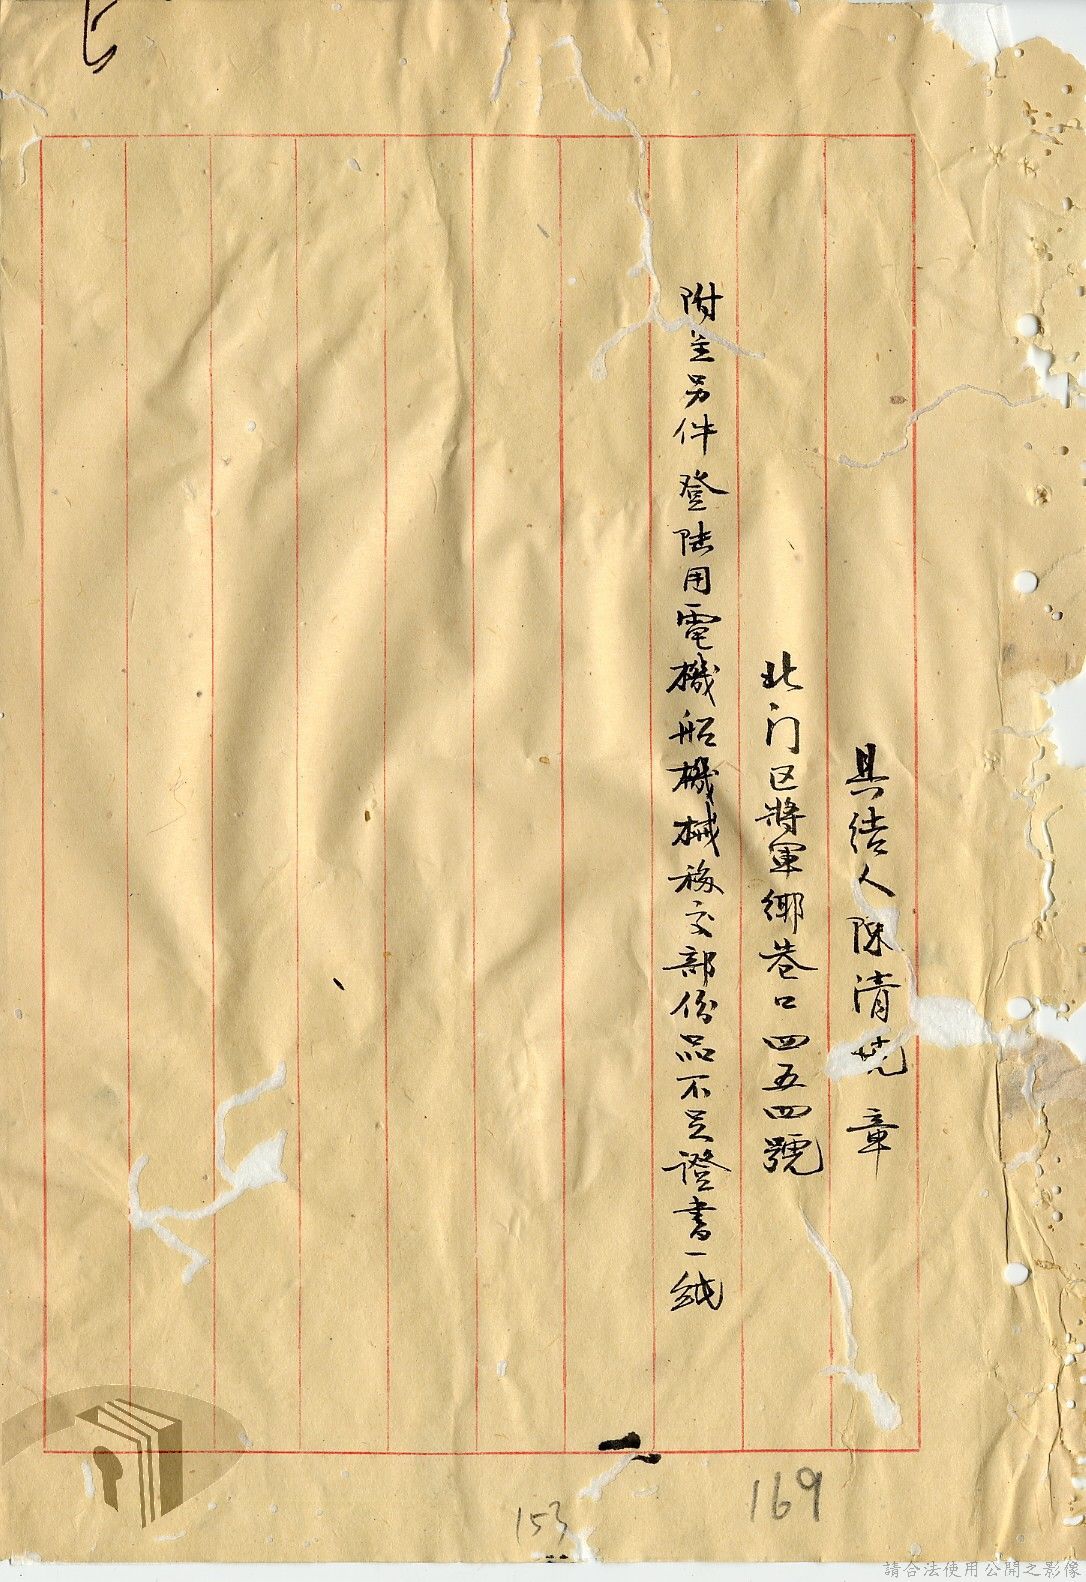 具結人陳清 章
北门区將軍鄉巷口四五四號
附呈另件登陸用電機船機械移交部份品不足證書一紙
169
153
請合法使用公開之影像